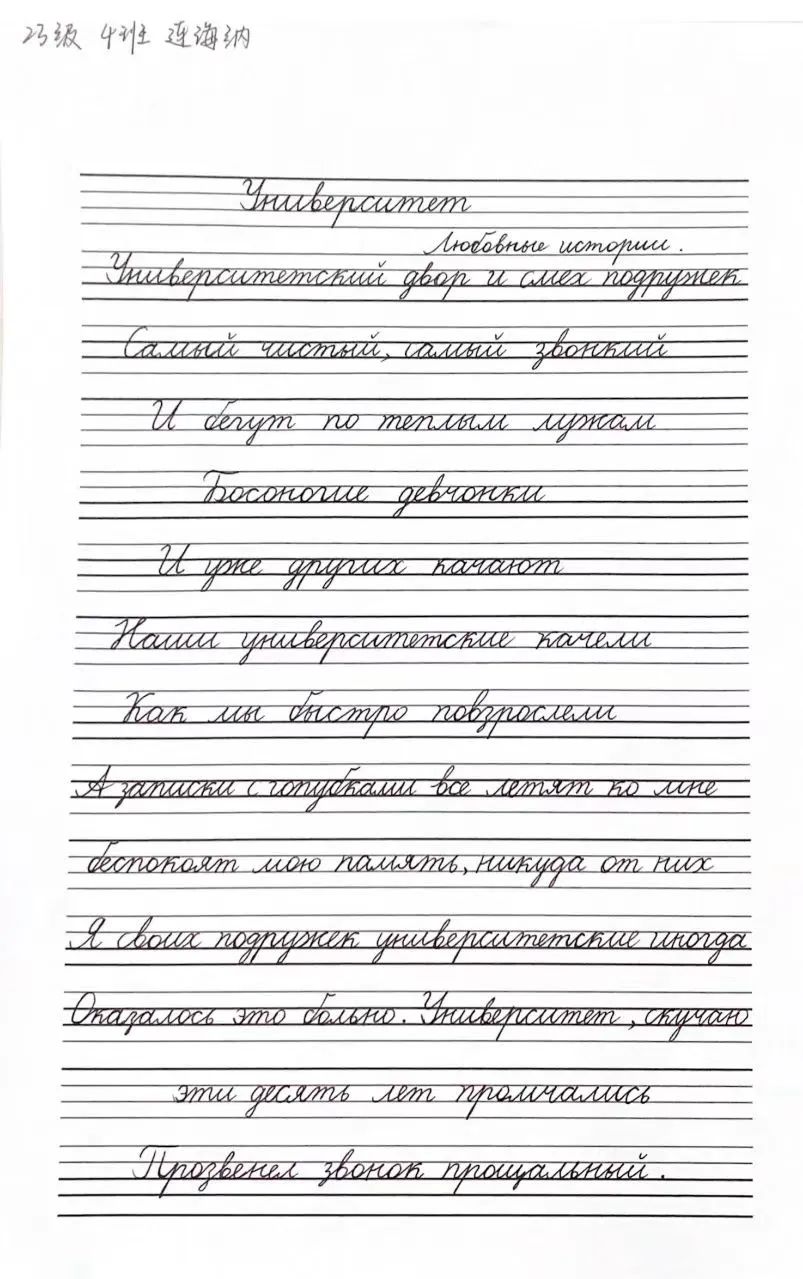 23级 4班 连海纳
Университет
Любовные истории.
Университетский двор и смех подружек
Самый чистый, самый звонкий
И бегут по теплым лужам
Босоногие девчонки
И уже других качают
Наши университетские качели
Как мы быстро повзрослели
А записки с голубками все летят ко мне
беспокоят мою память, никуда от них
Я своих подружек университетские иногда
Оказалось это больно. Университет, скучаю
эти десять лет промчались
Прозвенел звонок прощальный.